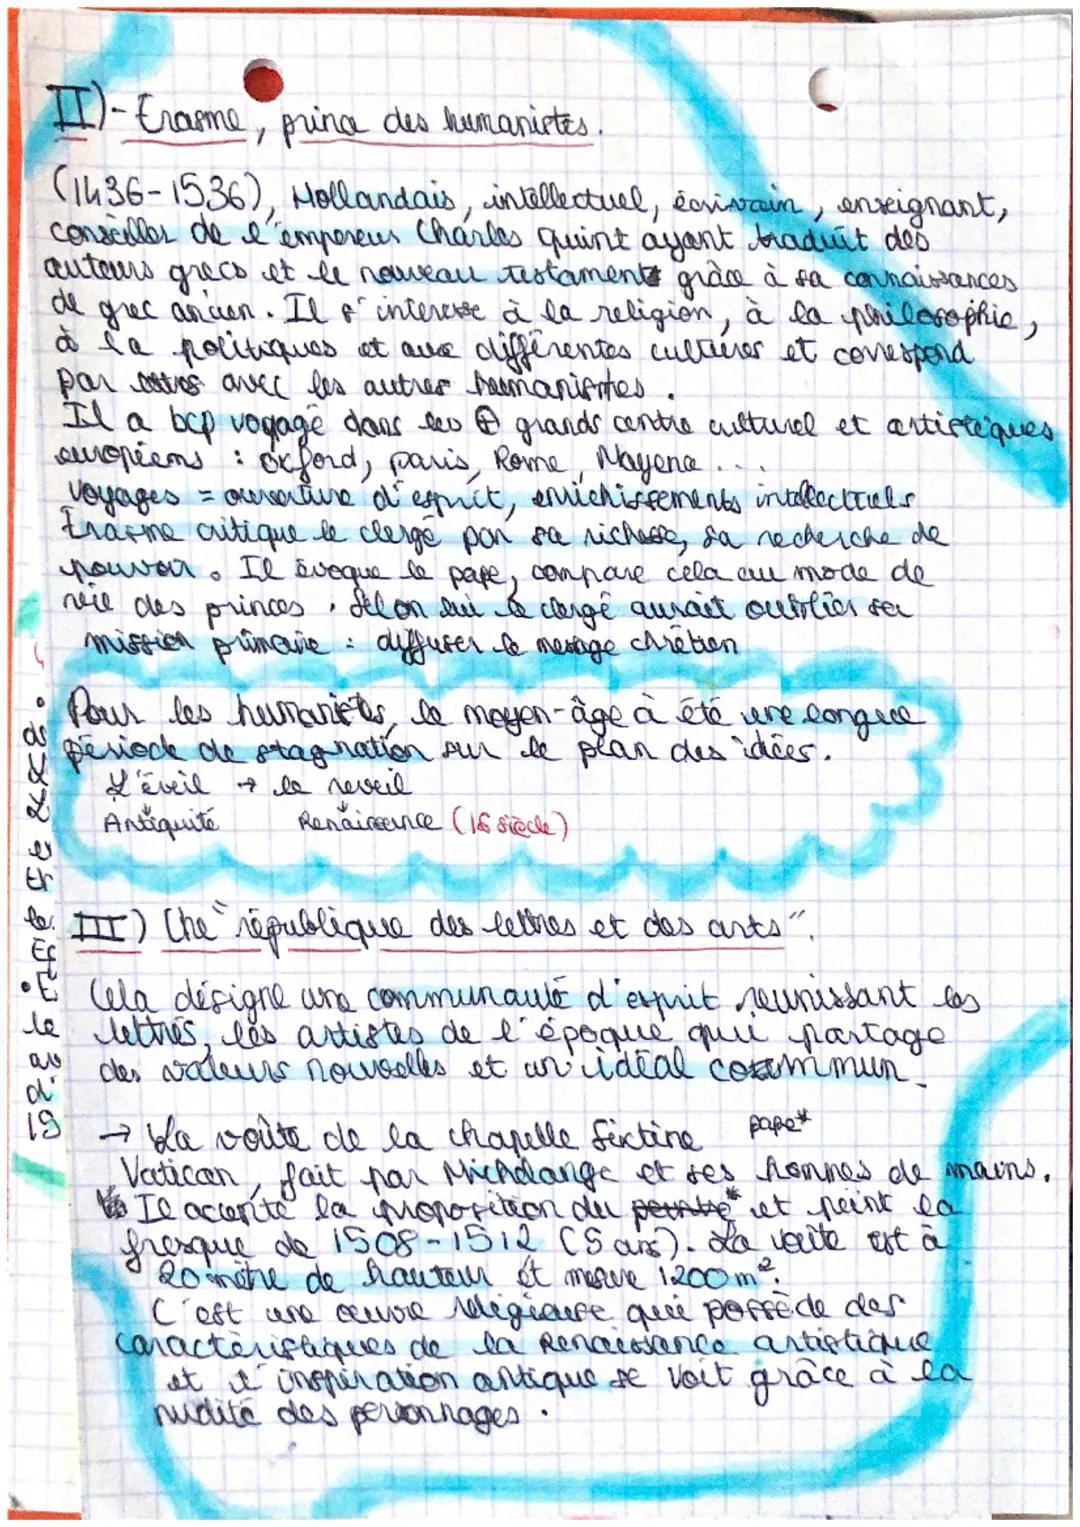 II)-Erasme, prince des humanistes.
(1436-1536), Hollandais, intellectuel, écrivain, enseignant,
conseiller de l'empereur Charles Quint ayant traduit des
auteurs grecs et le nouveau testament grâce à sa connaissances
de grec ancien. Il s'interesse à la religion, à la philosophie,
à la politiques et aux différentes cultures et correspond
par avec les autres humanistes.
Il a bcp voyagé dans les ⊕ grands centre culturel et artistiques
européens : oxford, paris, Rome, Mayence...
voyages = ouverture d'esprit, enrichissements intellectuels
Erasme critique le clergé par sa richesse, sa recherche de
pouvoir. Il évoque le pape, compare cela au mode de
vie des princes. Selon lui le clergé aurait oublier sa
mission primaire : diffuser le message chrétien
Pour les humanistes, le moyen-âge à été une longue
période de stagnation sur le plan des idées.
L'éveil → le reveil
Antiquité Renaissance (16 siècle)
III) Une "république des lettres et des arts".
Cela désigne une communauté d'esprit reunissant les
lettrés, les artistes de l'époque qui partage
des valeurs nouvelles et un idéal commun.
→ La voûte de la chapelle Sixtine pape*
Vatican, fait par Michelange et ses hommes de mains.
Il accepte la proposition du * et peint la
fresque de 1508-1512 (5 ans). La voûte est à
20 mètre de hauteur et mesure 1200 m².
C'est une œuvre religieuse qui possède des
caractéristiques de la Renaissance artistique
et l'inspiration antique se voit grâce à la
nudité des personnages.